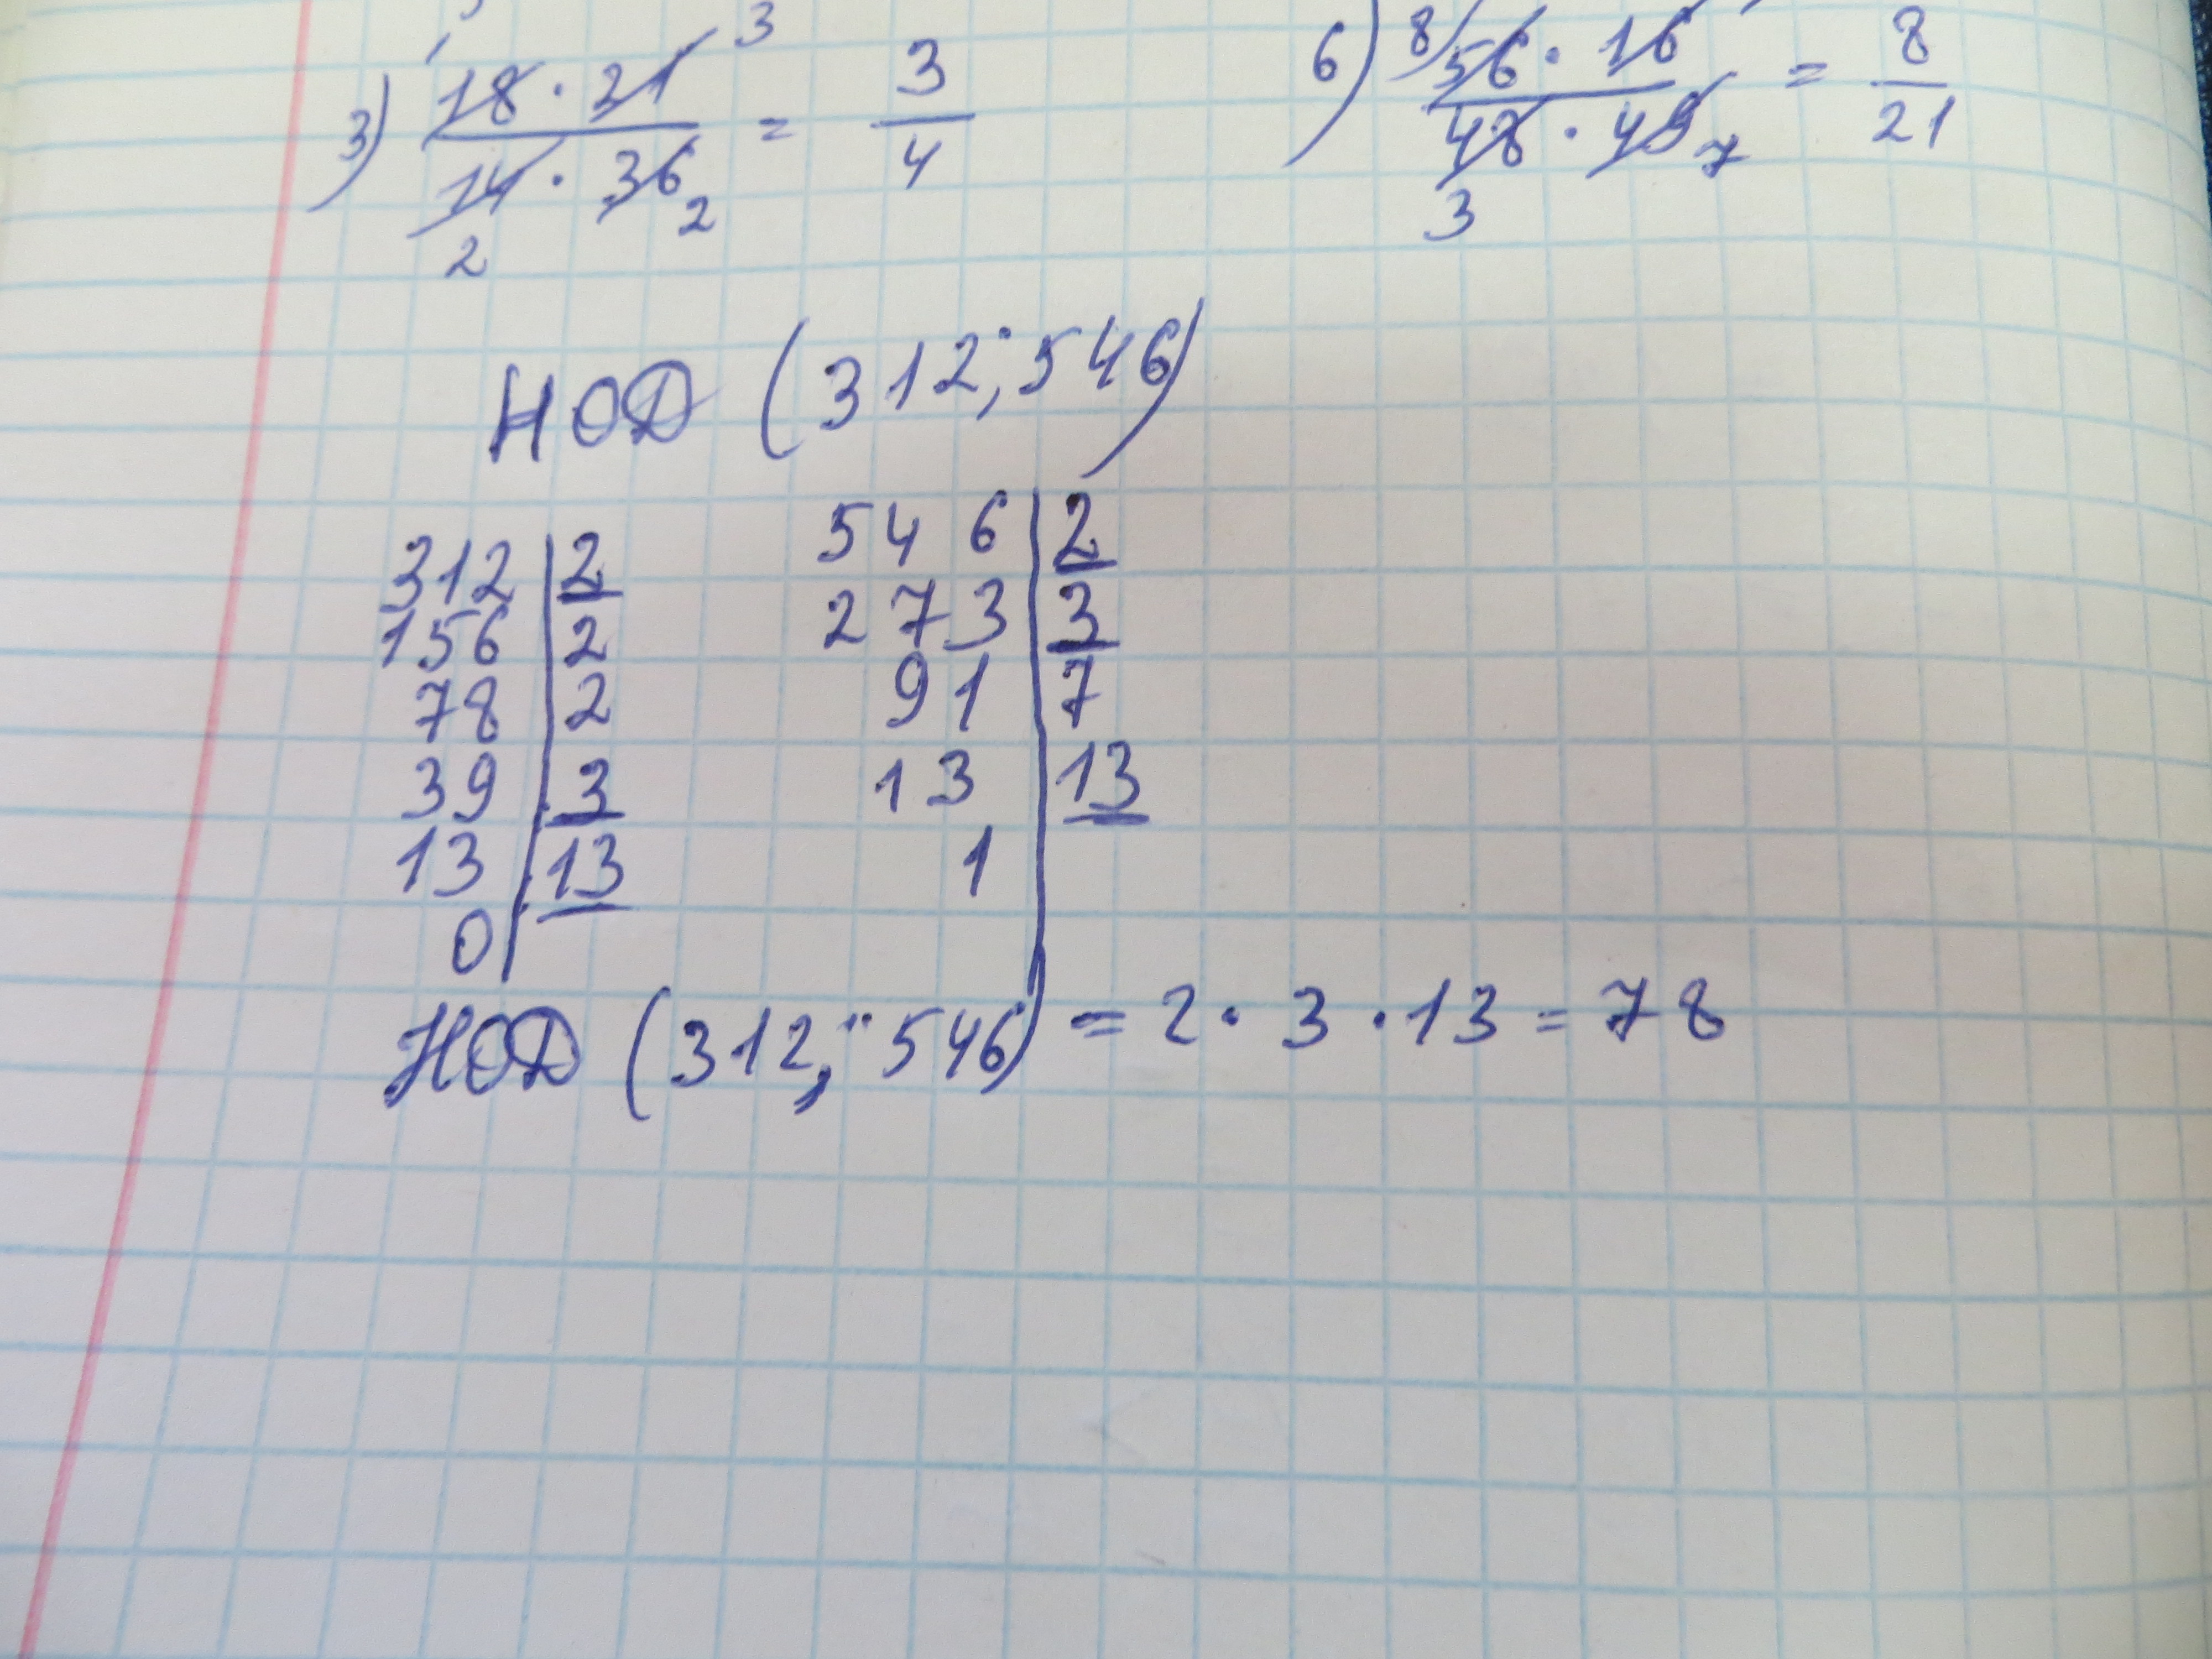 3) 18 · 21 / 14 · 36 = 3/4
3
2 2
6) 56 · 16 / 48 · 49 = 8/21
8
3 7
НОД (312; 546)
312 | 2
156 | 2
78 | 2
39 | 3
13 | 13
0
546 | 2
273 | 3
91 | 7
13 | 13
1
НОД (312; 546) = 2 · 3 · 13 = 78